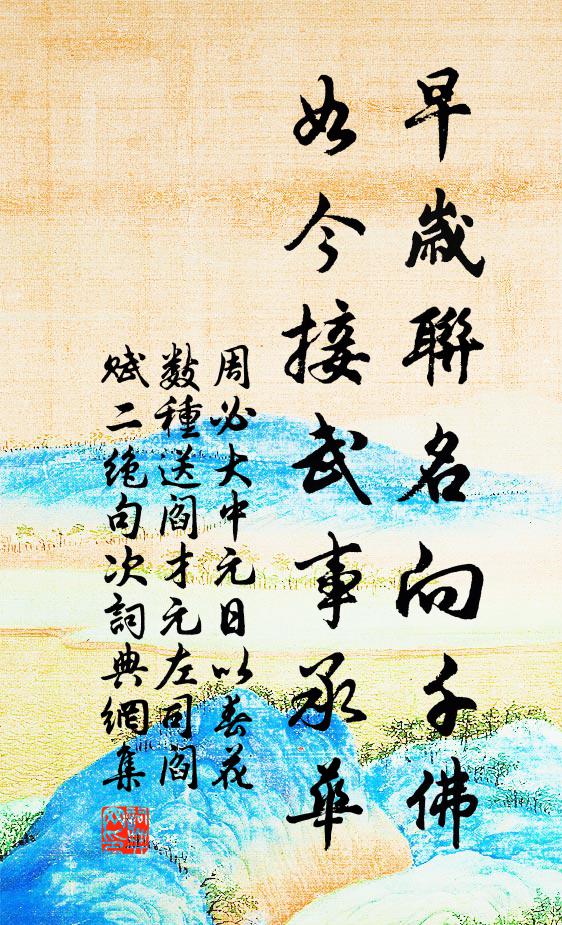 早歲聯名向千佛
如今接武事承華
周必大中元日以春花
數種送閻才元左司閻
賦二絕句次詞典網集